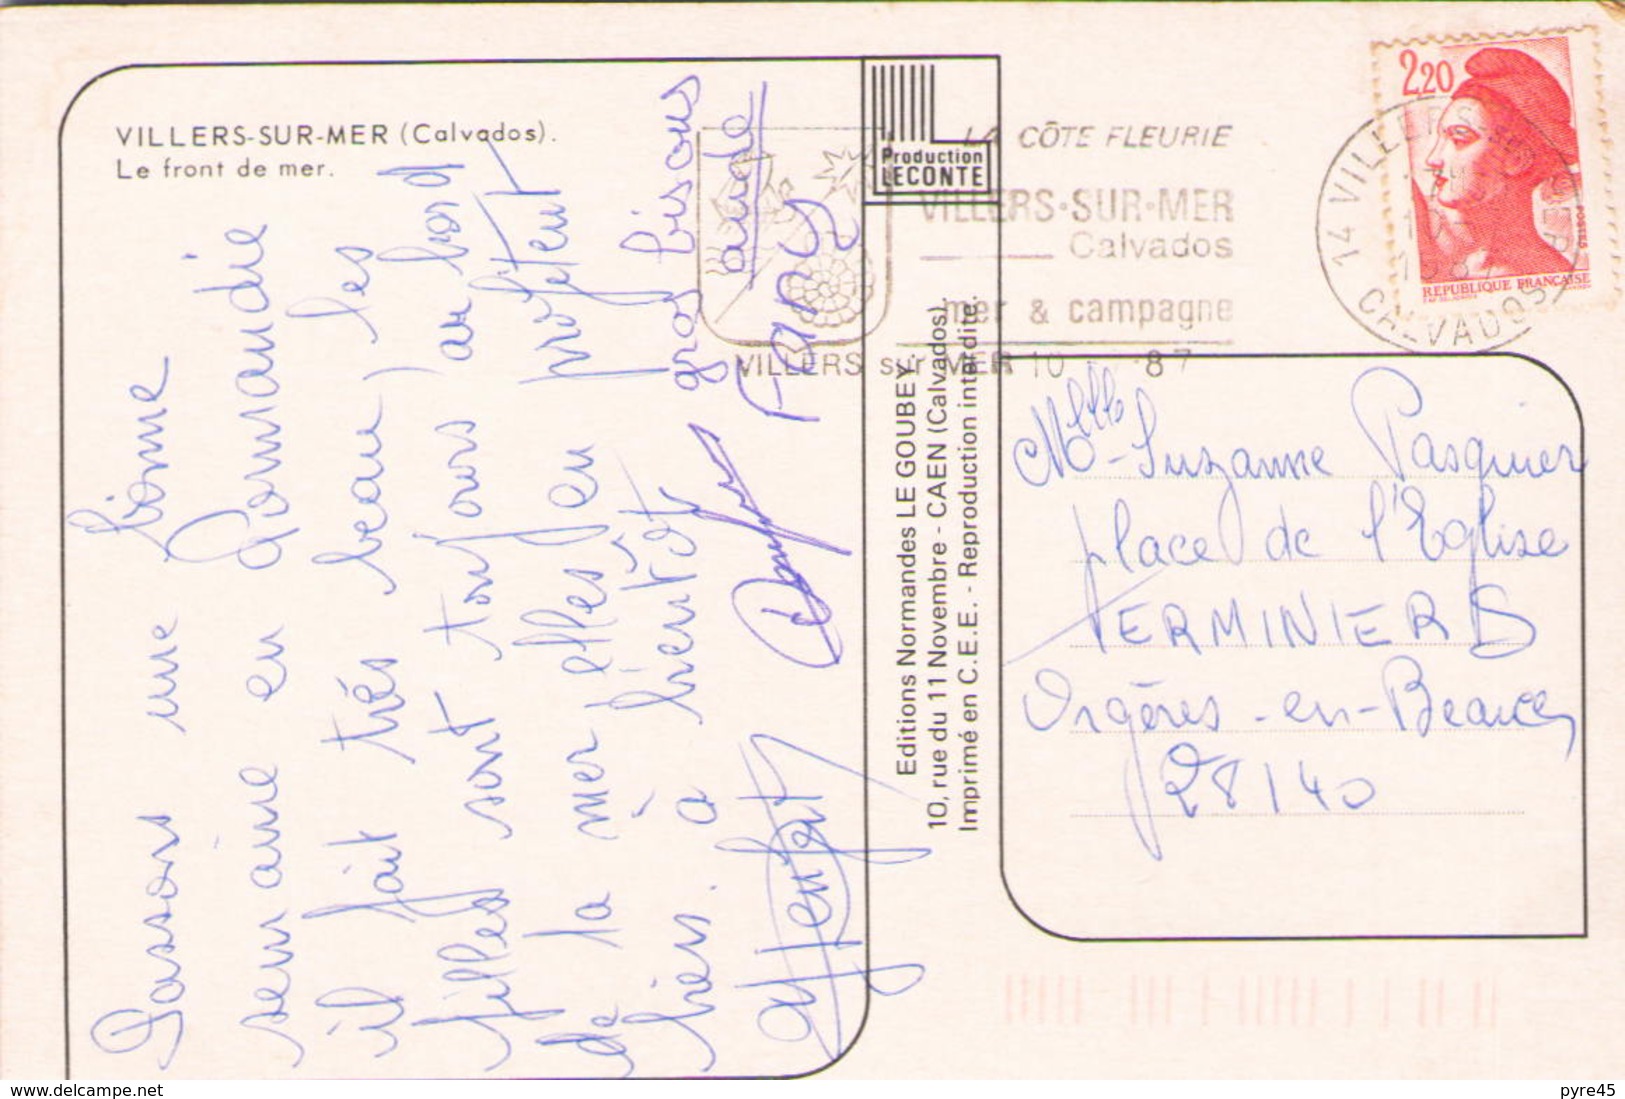 VILLERS-SUR-MER (Calvados).
Le front de mer.
Passons une bonne
semaine en Normandie
il fait très beau, les
filles sont toujours au bord
de la mer, elles en profitent
bien. à bientôt gros bisous
aude
Fanny
Production
LECONTE
Editions Normandes LE GOUBEY.
10, rue du 11 Novembre - CAEN (Calvados).
Imprimé en C.E.E. - Reproduction interdite.
LA CÔTE FLEURIE
VILLERS·SUR·MER
Calvados
mer & campagne
VILLERS sur MER 10 87
2,20
REPUBLIQUE FRANÇAISE
POSTES
14 VILLERS-SUR-MER
CALVADOS
Melle Suzanne Pasquier
place de l'Eglise
TERMINIERS
Orgères-en-Beauce
28140
www.delcampe.net
pyre45